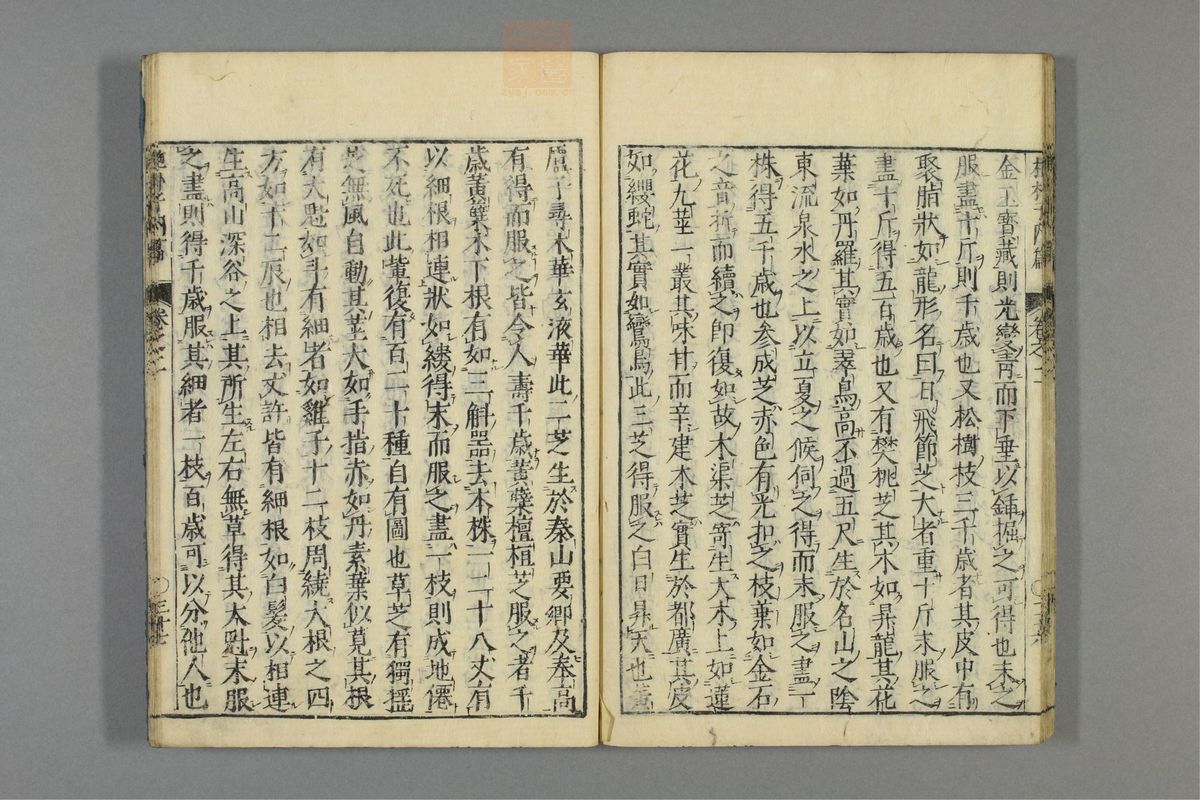 金玉寶藏則光變青而下垂以鍤掘之可得也末之
服盡十斤則千歲也又松樹枝三千歲者其皮中有
聚脂狀如龍形名曰日飛節芝大者重十斤末服之
盡十斤得五百歲也又有樊桃芝其木如昇龍其花
葉如丹羅其實如翠鳥高不過五尺生於名山之陰
東流泉水之上以立夏之候伺之得而末服之盡一
株得五千歲也參成芝赤色有光扣之枝葉如金石
之音折而續之即復如故木渠芝寄生大木上如蓮
花九莖一叢其味甘而辛建木芝實生於都廣其皮
如纓蛇其實如鸞鳥此三芝得服之白日昇天也黃
盧子尋木華玄液華此二芝生於泰山要鄉及奉高
有得而服之皆令人壽千歲黃蘗檀桓芝服之者千
歲黃蘗木下根有如三斛器去本株一二十八丈有
以細根相連狀如縷得末而服之盡一枝則成地僊
不死也此輩復有百二十種自有圖也草芝有獨搖
芝無風自動其莖大如手指赤如丹素葉似莧其根
有大魁如斗有細者如雞子十二枝周繞大根之四
方如十二辰也相去丈許皆有細根如白髮以相連
生高山深谷之上其所生左右無草得其大魁末服
之盡則得千歲服其細者一枝百歲可以分他人也